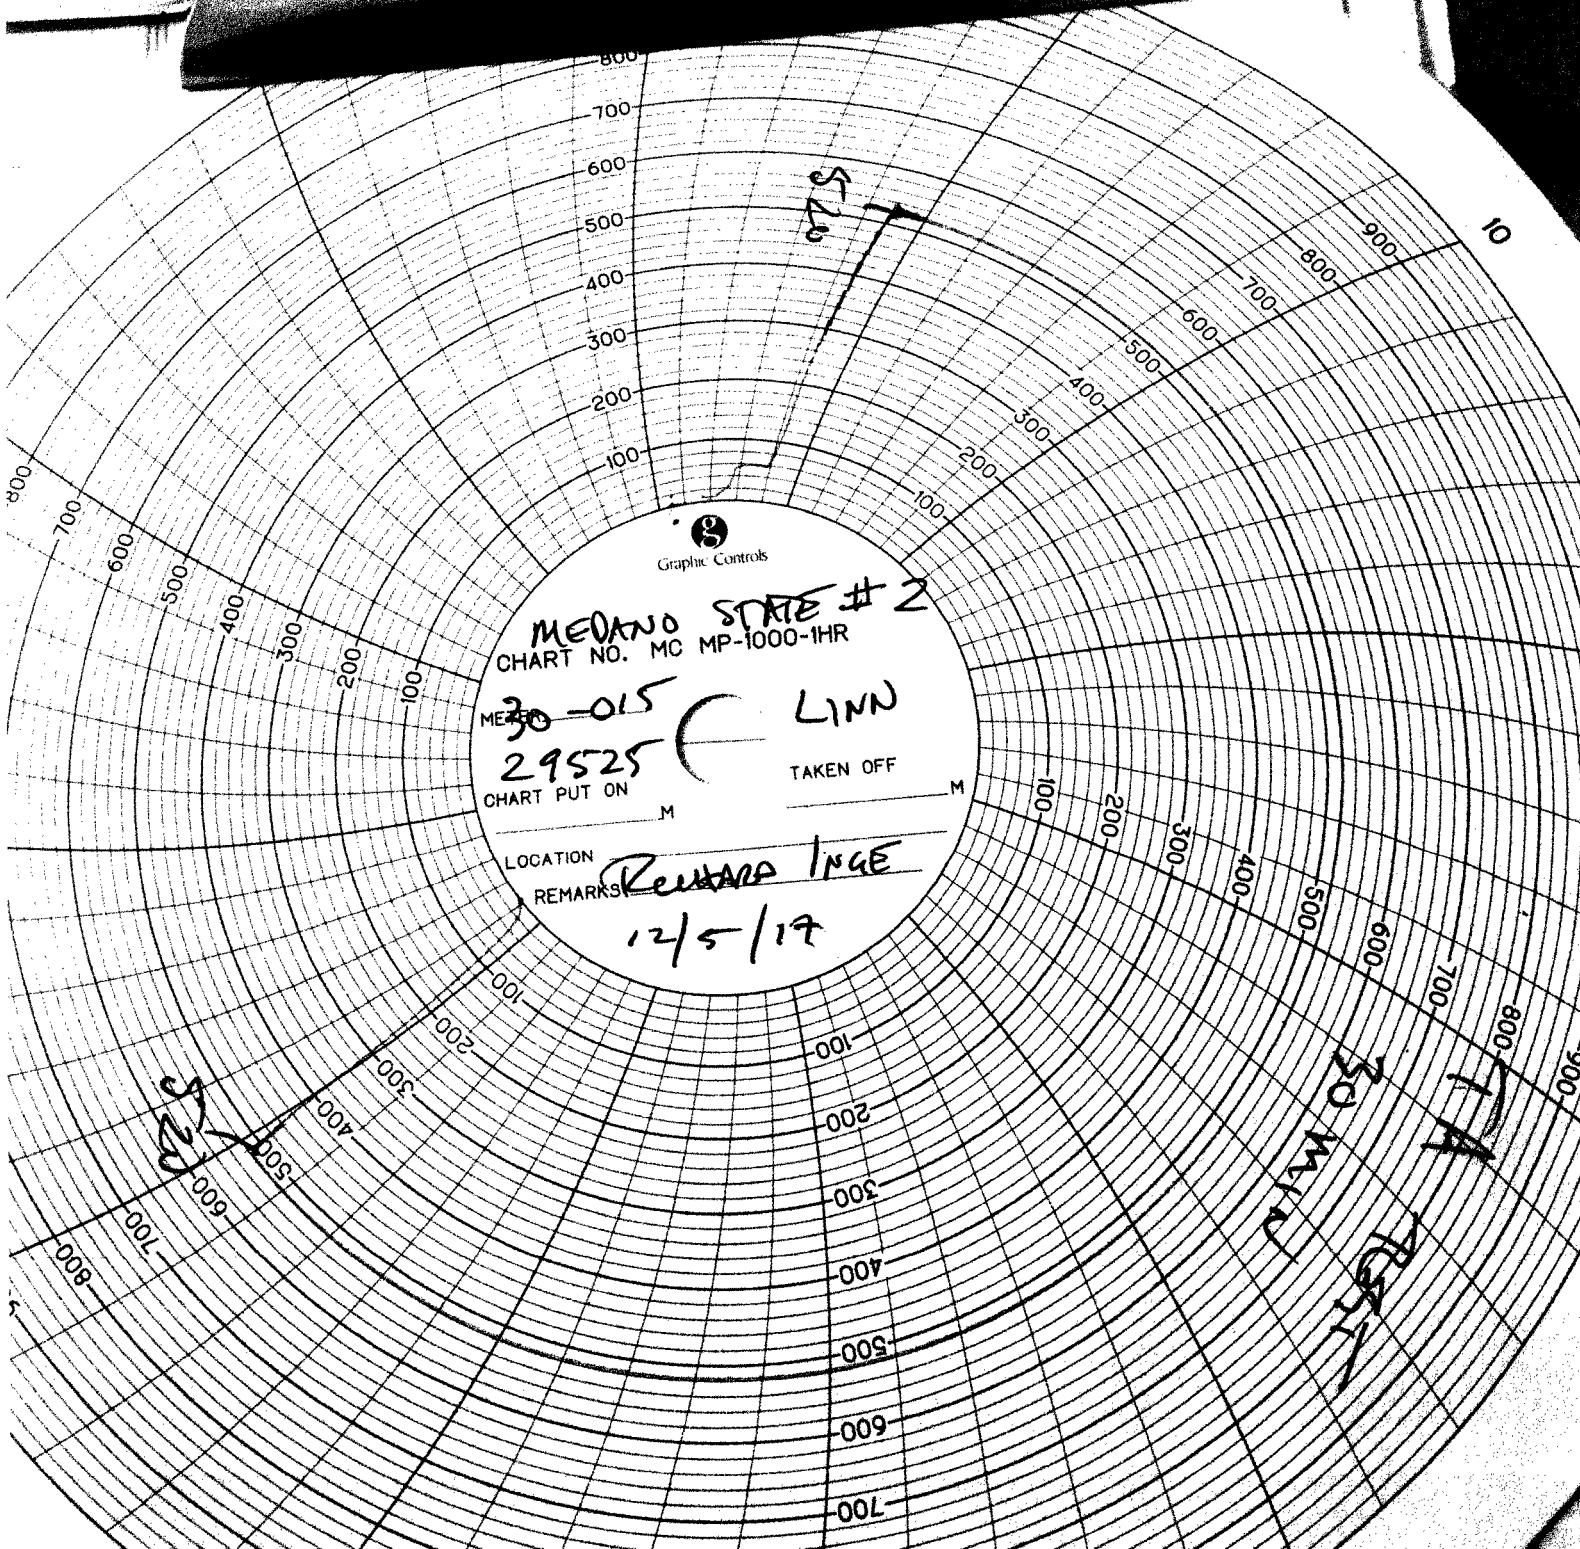 800
700
600
500
400
300
200
100
900
800
700
600
500
400
300
200
100
10
800
700
600
500
400
300
200
100
520
g
Graphic Controls
MEDANO STATE # 2
CHART NO. MC MP-1000-1HR
METER
30-015
LINN
29525
TAKEN OFF
CHART PUT ON
M
M
LOCATION
REMARKS RICHARD INGE
12/5/17
100
200
300
400
500
600
700
800
900
100
200
300
400
500
600
700
100
200
300
400
500
600
700
800
520
30 MIN
TA TEST